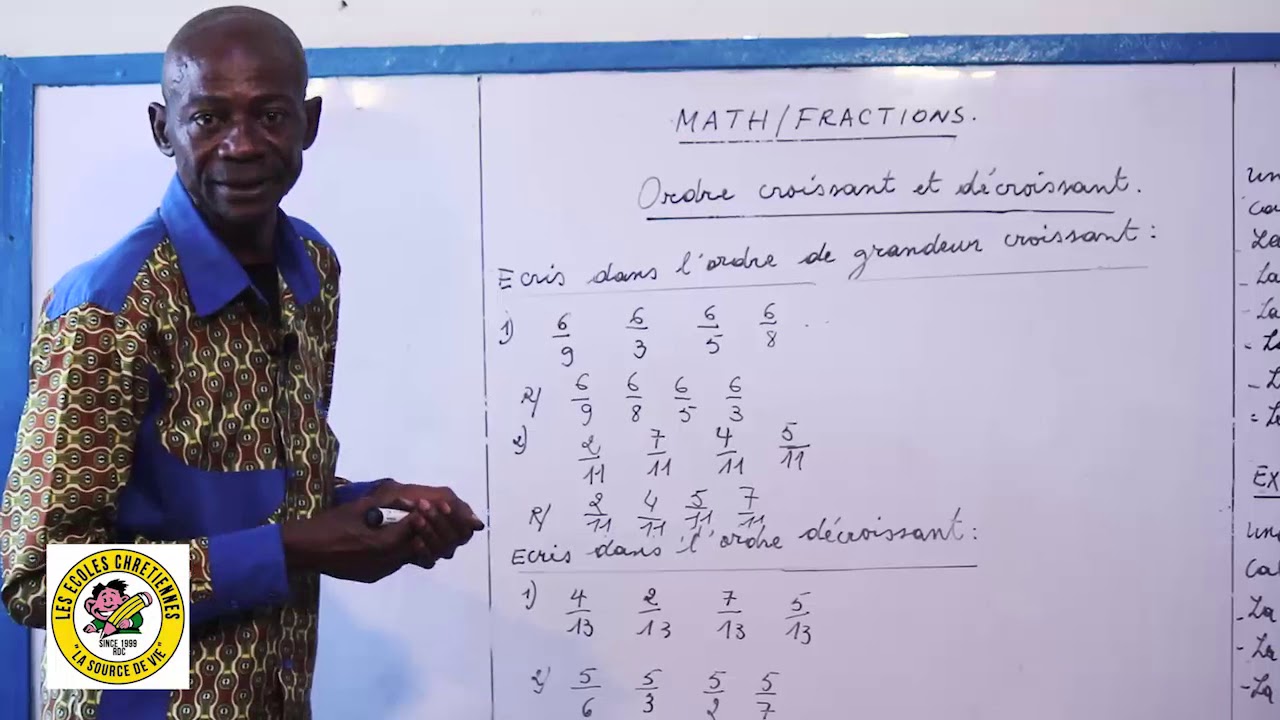 MATH/FRACTIONS.
Ordre croissant et décroissant.
Ecris dans l'ordre de grandeur croissant :
1) 6/9 6/3 6/5 6/8 ...
R/ 6/9 6/8 6/5 6/3
2) 2/11 7/11 4/11 5/11
R/ 2/11 4/11 5/11 7/11
Ecris dans l'ordre décroissant :
1) 4/13 2/13 7/13 5/13
2) 5/6 5/3 5/2 5/7
LES ECOLES CHRETIENNES
SINCE 1999
RDC
"LA SOURCE DE VIE"